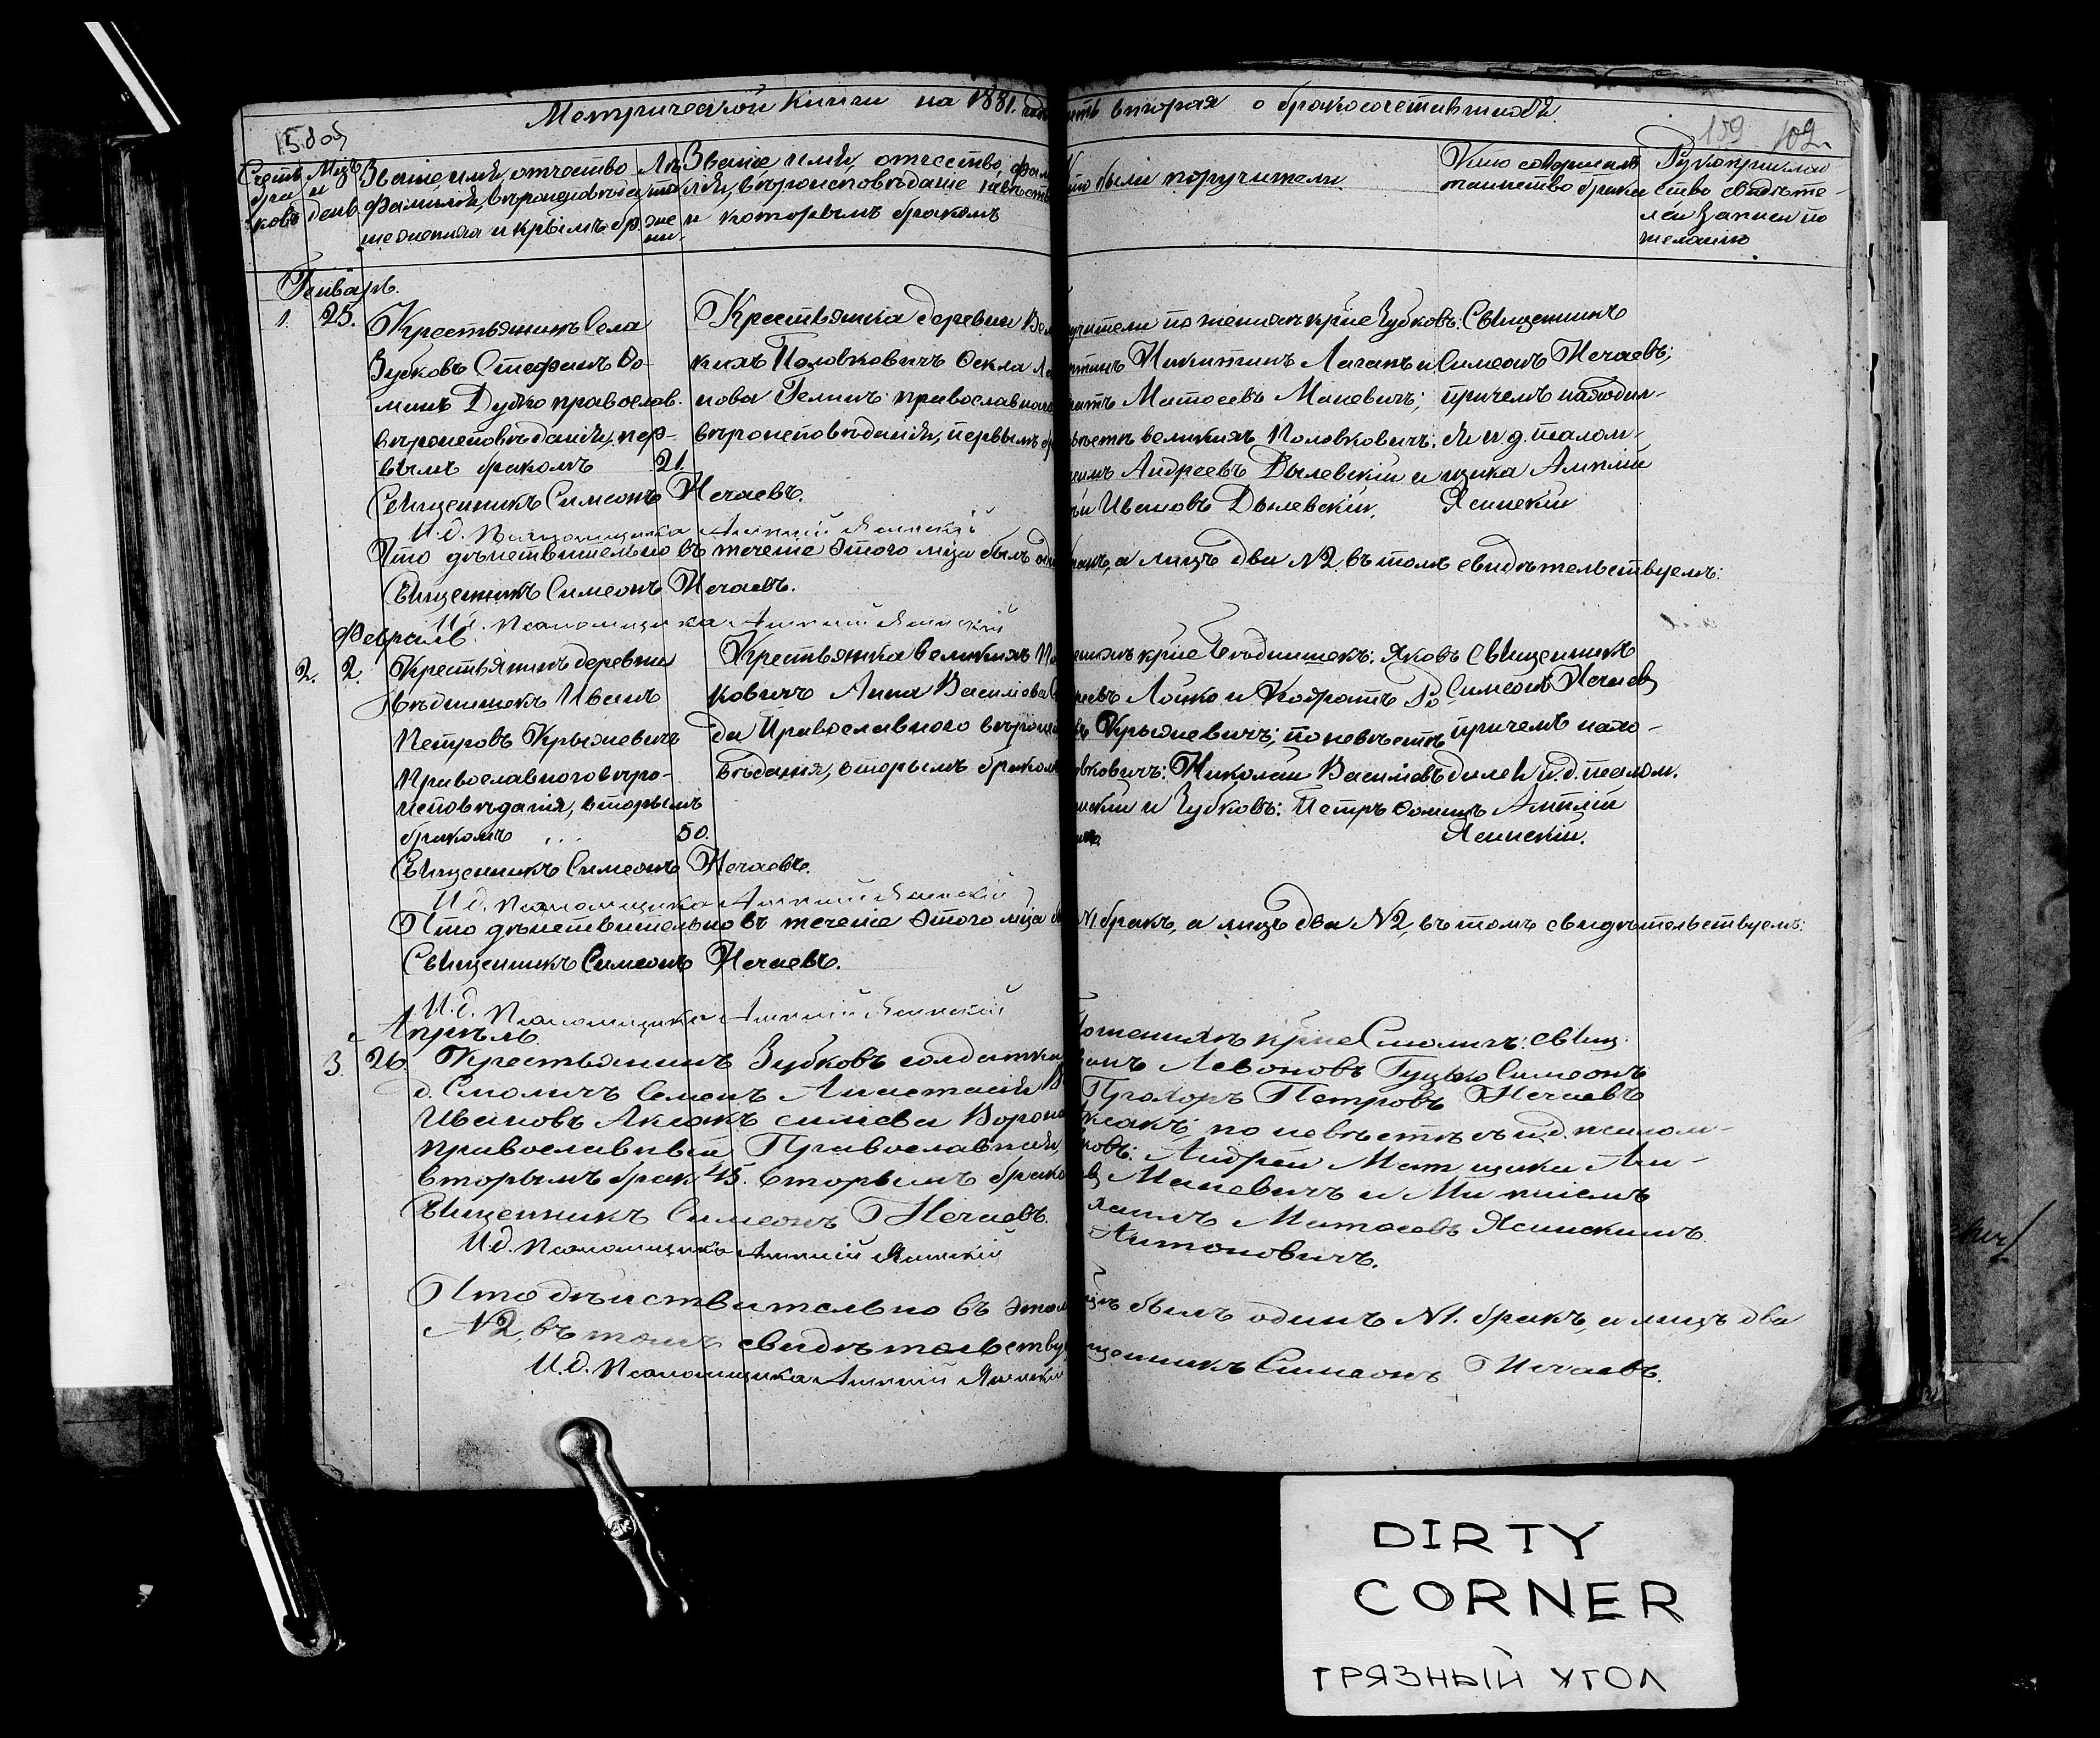 Метрической книги на 1881. годъ
сть вторая о бракосочетавшихся.
158об
159 102
Счетъ браковъ
Мцъ и день
Званіе, имя, отчество фамилія, вѣроисповѣданіе жениха и крымъ бр.
Лѣта жени
Званіе, имя, отчество, фамилія, вѣроисповѣданіе невѣсты и которымъ бракомъ
Кто были поручители
Кто совершалъ таинство брака
Рукоприкладство свидѣтелей записи по желанію
Генварь.
1. 25.
Крестьянинъ села
Зубковъ Стефанъ Ѳо-
минъ Дубко православ.
вѣроисповѣданія, пер-
вымъ бракомъ 21.
Крестьянка деревни Вел
кихъ Половковичъ Ѳекла
нова Гелинъ православнаго
вѣроисповѣданія, первымъ
учители по женихѣ крне Зубковъ:
Никитинъ Лаганъ и
Матѳеевъ Мацевичъ;
вѣстѣ великихъ Половковичъ:
Андреевъ Дылевскій и
Ивановъ Дылевскій.
Священникъ
Симеонъ Нечаевъ;
причемъ находил-
ся и. д. псалом-
щика Амплій
Ясинскій
Священникъ Симеонъ Нечаевъ.
И. д. Псаломщика Амплій Ясинскій
Что дѣйствительно въ теченіе этого мца былъ
бракъ, а лицъ два №2 въ томъ свидѣтельствуемъ:
Священникъ Симеонъ Нечаевъ.
И. д. Псаломщика Амплій Ясинскій
Февраль
2. 2.
Крестьянинъ деревни
Иванъ
Петровъ Крыжевичъ
Православнаго вѣро-
исповѣданія, вторымъ
бракомъ 50.
Крестьянка великихъ По
ковичъ Анна Васильева
да Православнаго вѣроис
вѣданія, вторымъ бракомъ
Яковъ
Лойко и Кодратъ
Крыжевичъ; по невѣстѣ
вковичъ: Николай Васильевъ
и Зубковъ: Петръ Ѳоминъ
Священникъ
Симеонъ Нечаев
причемъ нахо-
дился и. д. псалом.
Амплій
Ясинскій.
Священникъ Симеонъ Нечаевъ.
И. д. Псаломщика Амплій Ясинскій
Что дѣйствительно въ теченіе этого мца
№1. бракъ, а лицъ два №2, въ томъ свидѣтельствуемъ:
Священникъ Симеонъ Нечаевъ.
И. д. Псаломщика Амплій Ясинскій
Апрѣль
3. 26.
Крестьянинъ
д. Смоличъ Семенъ
Ивановъ Аксакъ
православный
вторымъ брак 45.
Зубковъ солдатка
Анастасія
силіева Ворон
Православная,
вторымъ брако
женихѣ крне Смоличъ:
Левоновъ Гуцко
Прохоръ Петровъ
ксакъ; по невѣстѣ
ковъ: Андрей Мат
Мацевичъ и Ми
хаилъ Матѳеевъ
Антоновичъ.
Свящ.
Симеонъ
Нечаевъ
съ и. д. псалом-
щика Ам-
пліемъ
Ясинскимъ.
Священникъ Симеонъ Нечаевъ.
И. д. Псаломщика Амплій Ясинскій
Что дѣйствительно въ этом
мцѣ былъ одинъ №1. бракъ, а лицъ два
№2, въ томъ свидѣтельству
Священникъ Симеонъ Нечаевъ.
И. д. Псаломщика Амплій Ясинскій
DIRTY
CORNER
ГРЯЗНЫЙ УГОЛ